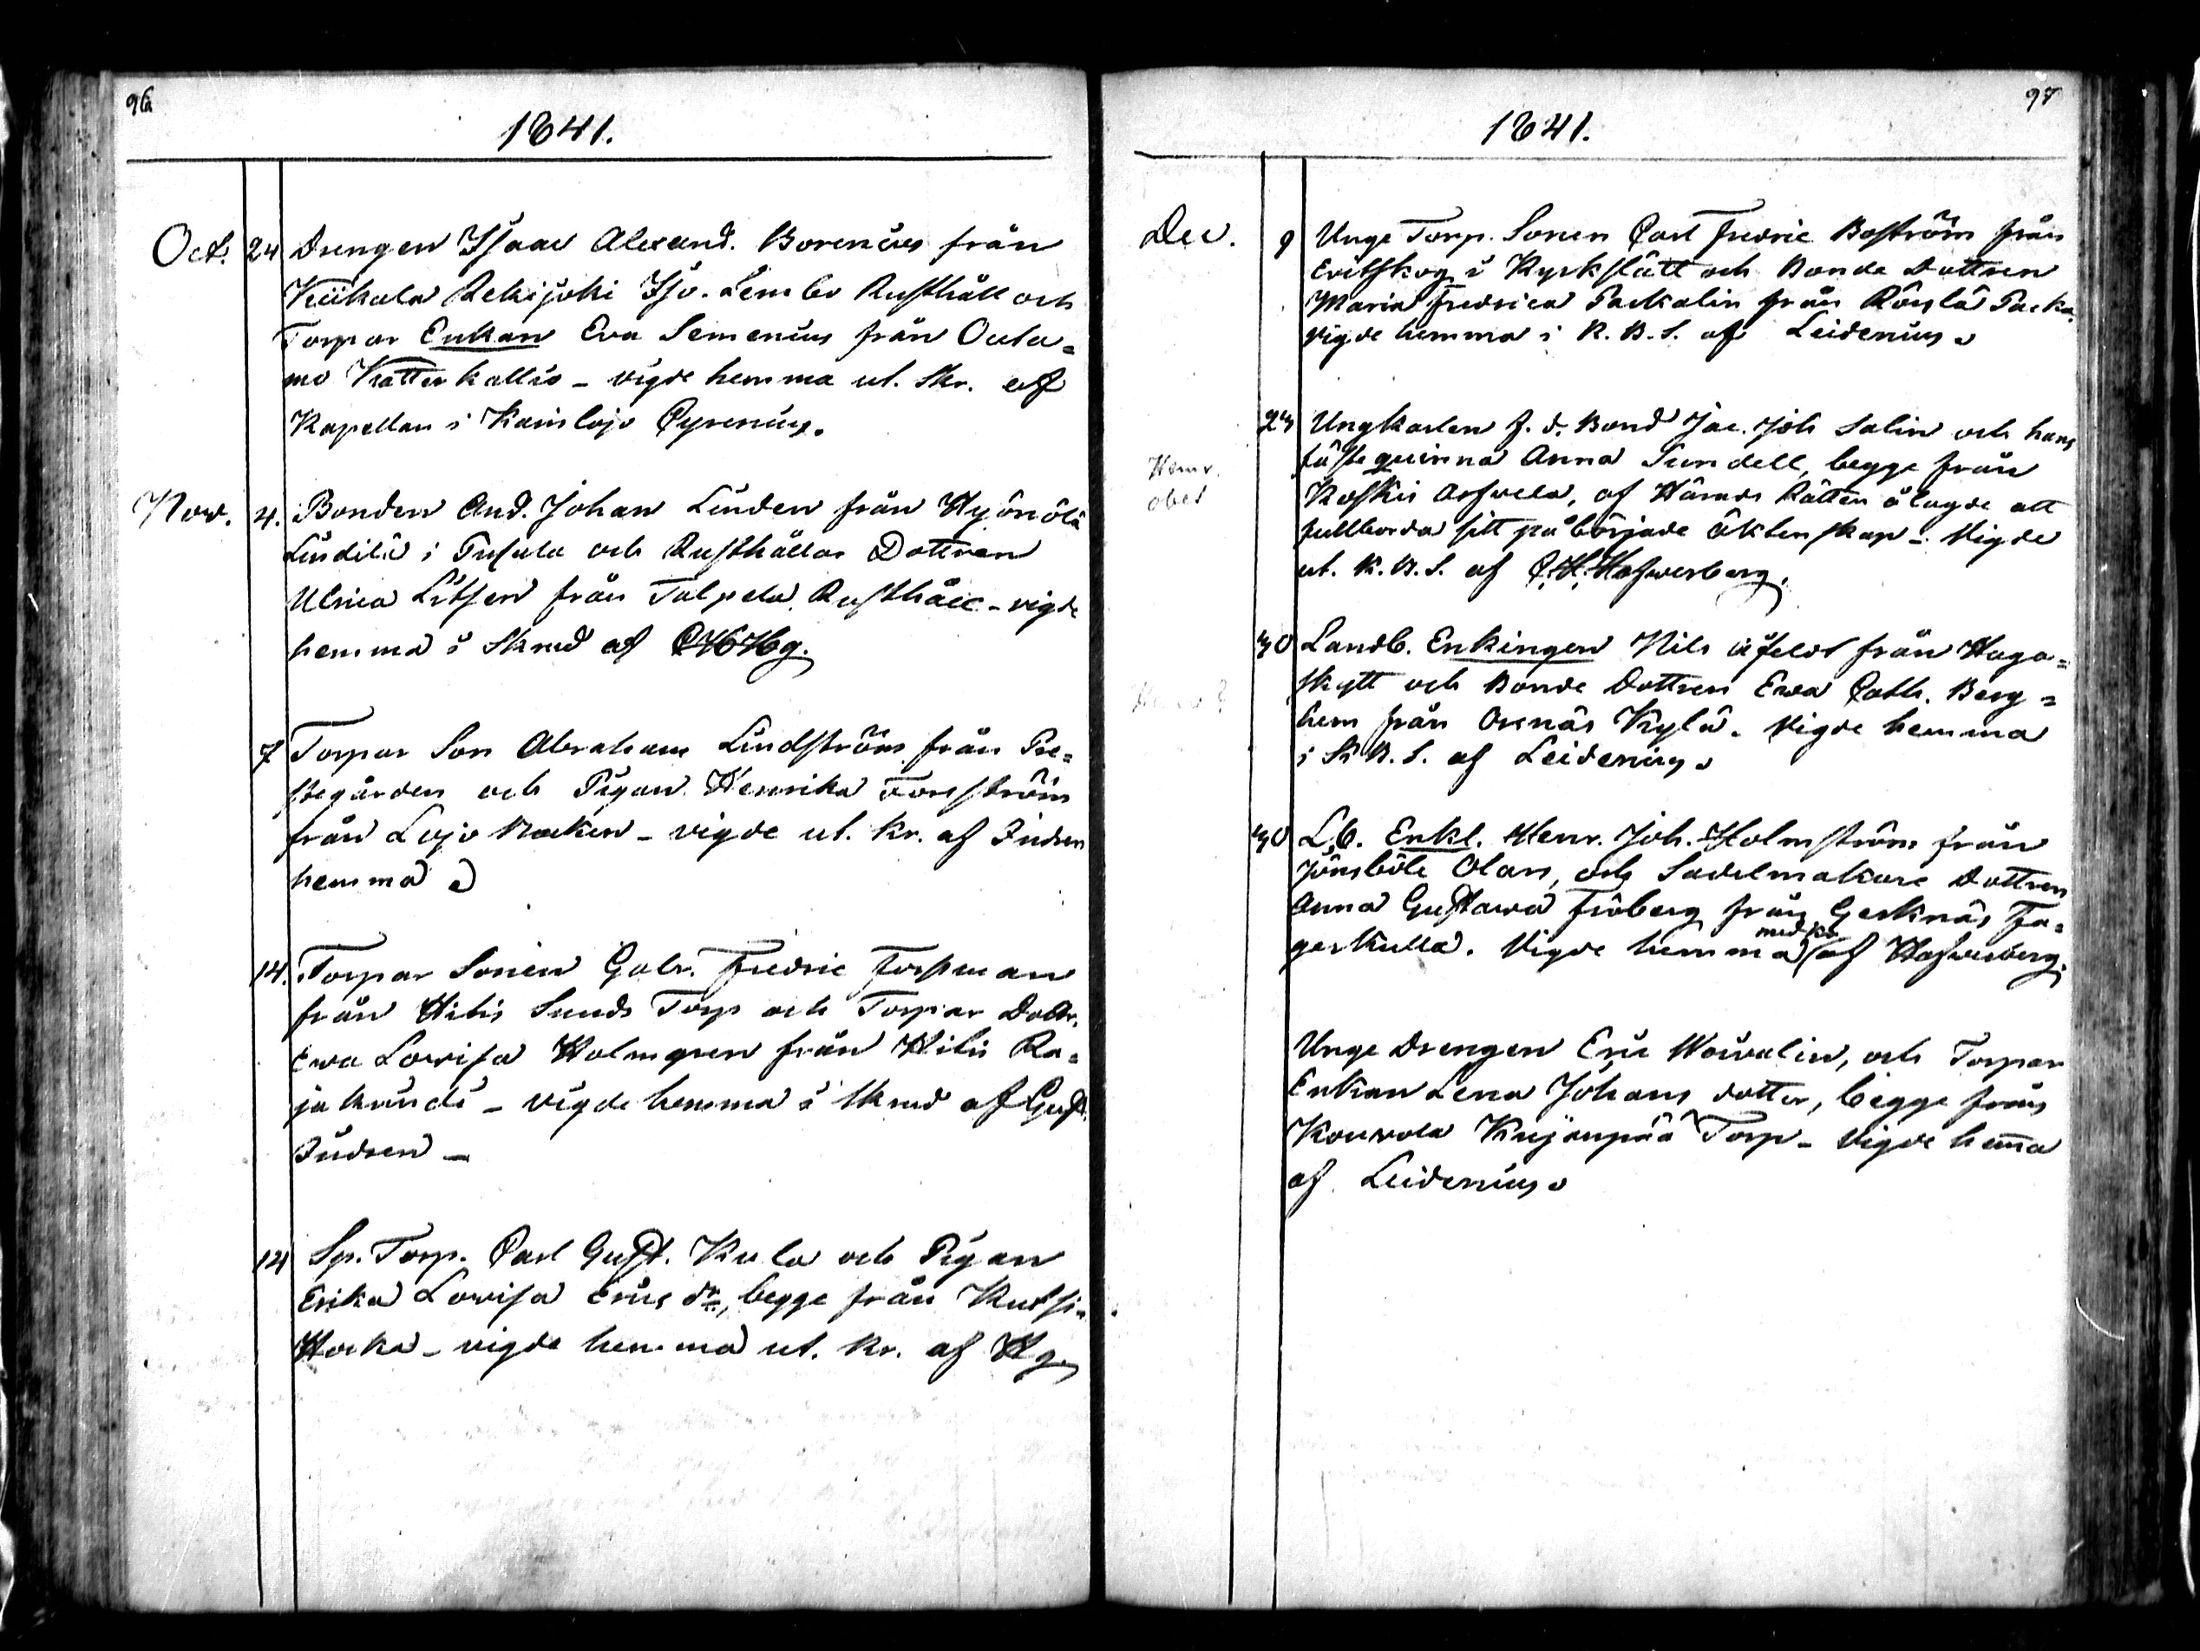 96
1841.
Oct. 24 Drengen Isaac Alexand. Borenius från
Kiikala Rekijoki Iso. Lembo Rusthåll och
Torpar Enkan Eva Semenius från Outa=
mo Katterkallio – vigde hemma ut. Skr. af
Kapellan i Karislojo Cyrenius.
Nov. 4. Bonden And. Johan Linden från Hyönölä
Lindilä i Tusula och Rusthållar Dottren
Ulrica Litsen från Talpela Rusthåll – vigde
hemma i Skrud af CHHbg.
7 Torpar Son Abraham Lindström från Pre=
stegården och Pigan Henrika Forsström
från Lojo Backen – vigde ut. kr. af Indren
hemma
14. Torpar Sonen Gabr. Fredric Forsman
från Hiis Sunds Torp och Torpar Dottr.
Ewa Lovisa Holmgren från Hiis Ra=
jakundi – vigde hemma i Skrud af Gust.
Indren –
14 Sp. Torp. Carl Gust. Kula och Pigan
Erika Lovisa Erics dr, begge från Kutsi=
Horka – vigde hemma ut. kr. af Hg
97
1841.
Dec. 9 Unge Torp. Sonen Carl Fredric Boström från
Evitskog i Kyrkslätt och Bonde Dottren
Maria Fredrica Packalin från Röylä Packa
vigde hemma i K. B. S. af Leidenius
23 Ungkarlen f. d. Bond Jac. Joh Salin och hans
fästeqvinna Anna Sundell, begge från
Koskis, af Härads Rätten ålagde att
fullborda sitt påbörjade äktenskap – Vigde
ut. K. B. S. af C. H. Hafverberg.
Hemr.
obet
30 Landb. Enkingen Nils Åfeldt från Haga=
skytt och Bonde Dottren Ewa Cath. Berg=
hem från Oxnäs Kylä. Vigde hemma
i K. B. S. af Leidenius
30 Lb. Enkl. Henr. Joh. Holmström från
Jönsböle Olars, och Sadelmakare Dottren
Anna Gustava Fröberg från Gerknäs Fa=
gerkulla. Vigde hemma med kr. af Hafverberg.
Unge Drengen Eric Wouvalin, och Torpar
Enkan Lena Johans dotter, begge från
Kouvola Kujanpää Torp – Vigde hemma
af Leidenius